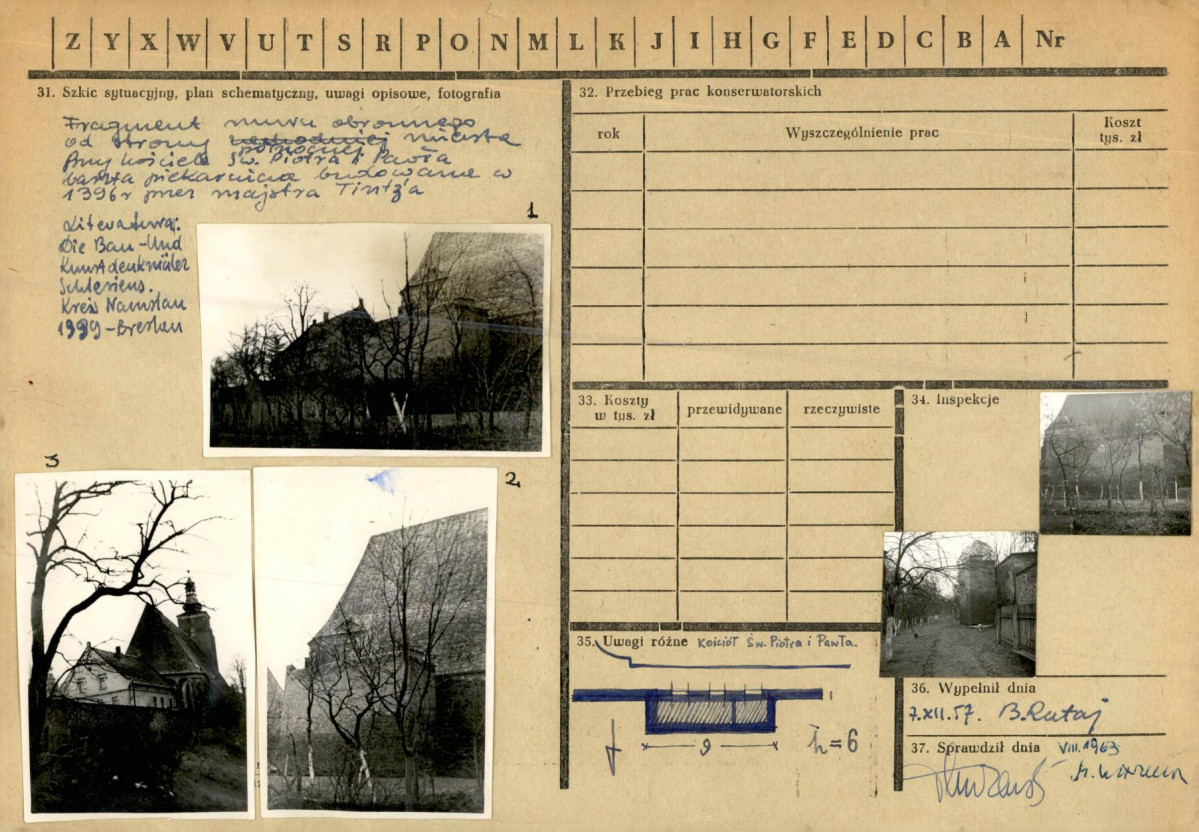 Z Y X W V U T S R P O N M L K J I H G F E D C B A Nr
31. Szkic sytuacyjny, plan schematyczny, uwagi opisowe, fotografia
Fragment muru obronnego
od strony wschodniej północnej miasta
przy kościele Św. Piotra i Pawła
baszta piekarnicza budowane w
1396 r przez majstra Tintz'a
Literatura:
Die Bau-Und
Kunstdenkmäler
Schlesiens.
Kreis Namslau
1939-Breslau
1
3
2
32. Przebieg prac konserwatorskich
rok
Wyszczególnienie prac
Koszt
tys. zł
33. Koszty
w tys. zł
przewidywane
rzeczywiste
34. Inspekcje
35. Uwagi różne Kościół Św. Piotra i Pawła.
9
h=6
36. Wypełnił dnia
7.XII.57. B. Rataj
37. Sprawdził dnia VIII.1963